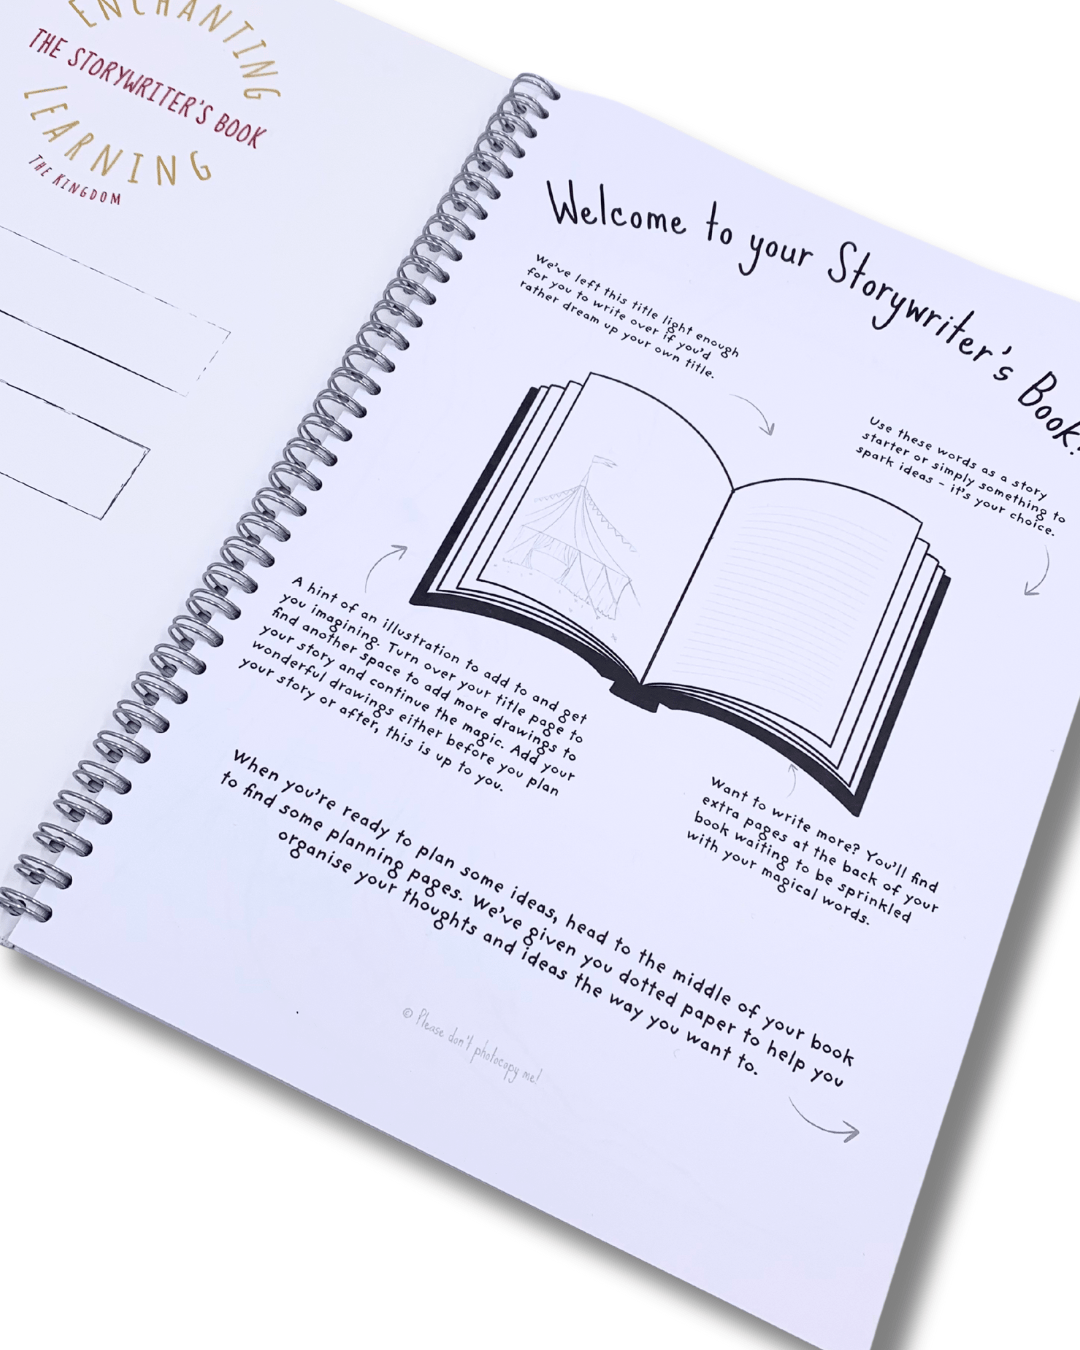 ENCHANTING
THE STORYWRITER'S BOOK
LEARNING
THE KINGDOM
Welcome to your Storywriter's Book!
We've left this title light enough
for you to write over if you'd
rather dream up your own title.
Use these words as a story
starter or simply something to
spark ideas - it's your choice.
A hint of an illustration to add to and get
you imagining. Turn over your title page to
find another space to add more drawings to
your story and continue the magic. Add your
wonderful drawings either before you plan
your story or after, this is up to you.
Want to write more? You'll find
extra pages at the back of your
book waiting to be sprinkled
with your magical words.
When you're ready to plan some ideas, head to the middle of your book
to find some planning pages. We've given you dotted paper to help you
organise your thoughts and ideas the way you want to.
© Please don't photocopy me!